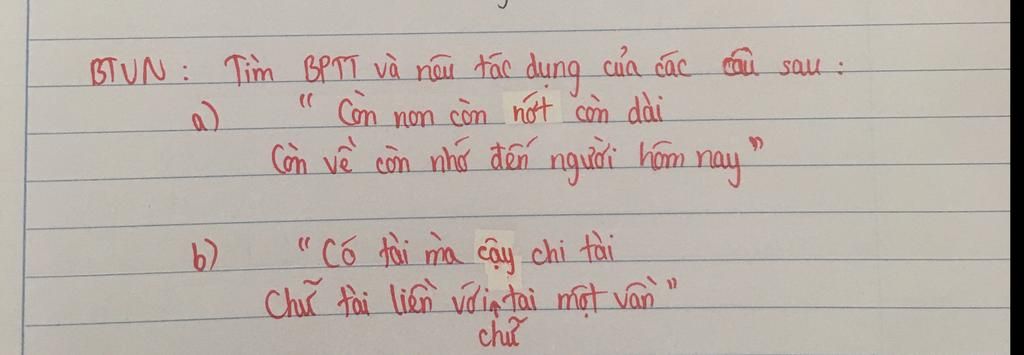 BTVN : Tìm BPTT và nêu tác dụng của các câu sau :
a) “ Còn non còn nớt còn dài
Còn về còn nhớ đến người hôm nay ”
b) “ Có tài mà cậy chi tài
Chữ tài liền với chữ tai một vần ”